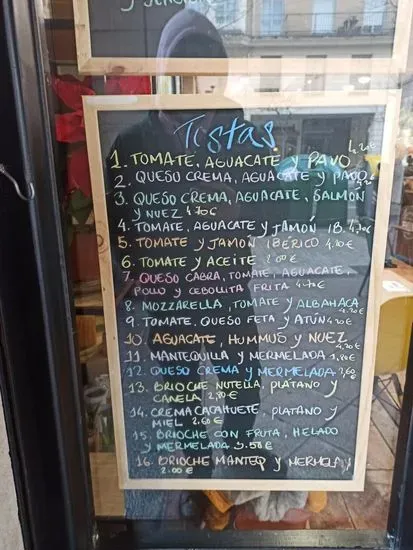 Tostas
1. TOMATE, AGUACATE Y PAVO 4,20€
2. QUESO CREMA, AGUACATE Y PAVO
3. QUESO CREMA, AGUACATE, SALMÓN
Y NUEZ 4.70€
4. TOMATE, AGUACATE Y JAMÓN IB. 4,70€
5. TOMATE Y JAMÓN IBÉRICO 4.10€
6. TOMATE Y ACEITE 2.00€
7. QUESO CABRA, TOMATE, AGUACATE,
POLLO Y CEBOLLITA FRITA 4.70€
8. MOZZARELLA, TOMATE Y ALBAHACA
4,20€
9. TOMATE, QUESO FETA Y ATÚN 4,20€
10. AGUACATE, HUMMUS Y NUEZ
4,20€
11. MANTEQUILLA Y MERMELADA 1,80€
12. QUESO CREMA Y MERMELADA 2,60€
13. BRIOCHE NUTELLA, PLATANO Y
CANELA 2,80€
14. CREMA CACAHUETE, PLATANO Y
MIEL 2.60€
15. BRIOCHE CON FRUTA, HELADO
Y MERMELADA 3.50€
16. BRIOCHE MANTEQ Y MERMELA
2.00€